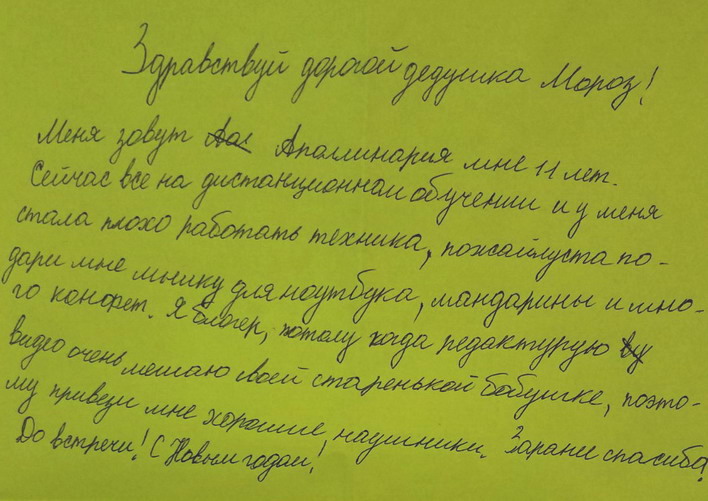 Здравствуй дорогой дедушка Мороз!
Меня зовут Аполлинария мне 11 лет.
Сейчас все на дистанционном обучении и у меня
стала плохо работать техника, пожайлуста по-
дари мне мышку для ноутбука, мандарины и мно-
го конфет. Я блогер, потому когда редактурую
видео очень мешаю своей старенькой бабушке, поэто-
му приведи мне хорошие наушники. Зарание спасиба!
До встречи! С Новым годам!